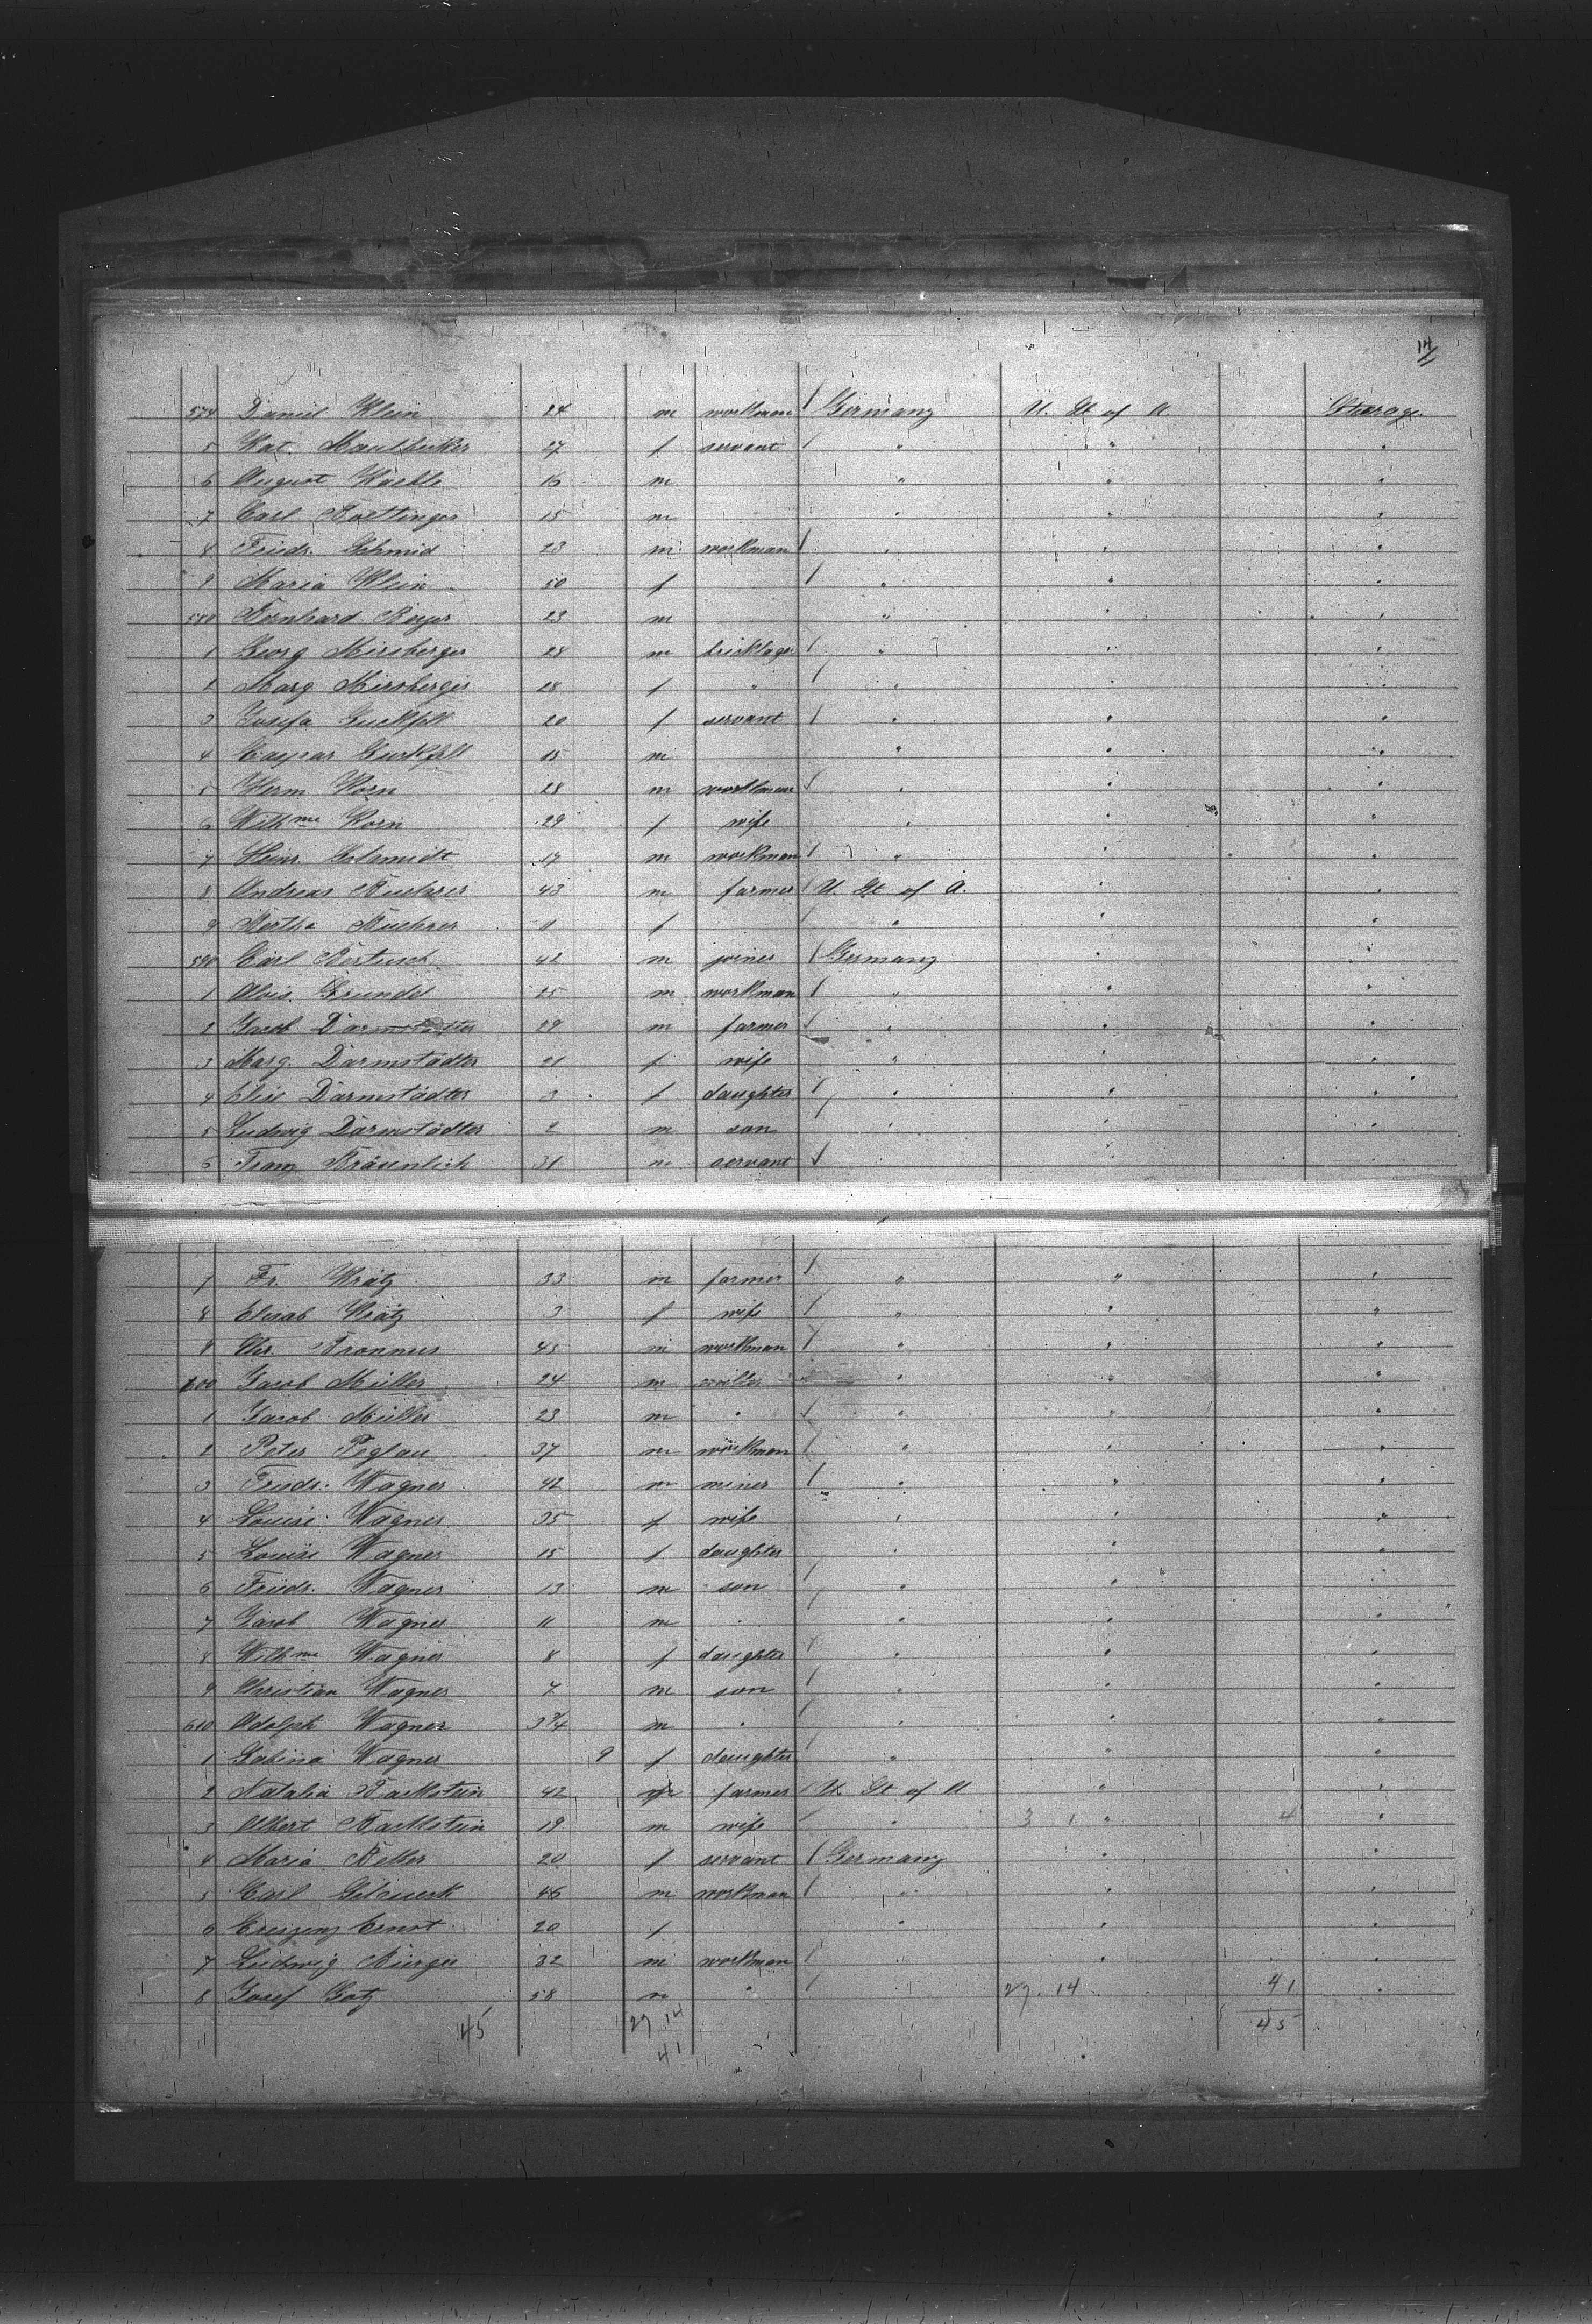 14
574 Daniel Klein 24 m workman Germany U. St of A. Steerage
5 Kat. Maulbecker 27 f servant " " "
6 August Kaehle 16 m " " "
7 Carl Boettinger 15 m " " "
8 Friedr. Schmid 23 m workman " " "
9 Maria Klein 50 f " " "
580 Bernhard Beyer 23 m " " "
1 Georg Mirsberger 28 m bricklayer " " "
2 Marg Mirsberger 28 f " " " "
3 Josefa 20 f servant " " "
4 Caspar 15 m " " "
5 Herm Korn 28 m workman " " "
6 Wilhme Korn 29 f wife " " "
7 Heinr. Schmidt 17 m workman " " "
8 Andreas Buehrer 43 m farmer U. St of A. " "
9 Bertha Buehrer 11 f " " "
590 Carl Bertusch 42 m joiner Germany " "
1 Alois Gründel 25 m workman " " "
2 Jacob Darmstädter 29 m farmer " " "
3 Marg. Darmstädter 21 f wife " " "
4 Elise Darmstädter 3 f daughter " " "
5 Ludwig Darmstädter 2 m son " " "
6 Bräunlich 31 m servant
7 Fr. Krätz 33 m farmer " " "
8 Elisab Krätz 3 f wife " " "
9 Chr. Bronnus 45 m workman " " "
600 Jacob Müller 24 m miller " " "
1 Jacob Müller 23 m " " " "
2 Peter Peglau 37 m workman " " "
3 Friedr. Wagner 42 m miner " " "
4 Louise Wagner 35 f wife " " "
5 Louise Wagner 15 f daughter " " "
6 Friedr. Wagner 13 m son " " "
7 Jacob Wagner 11 m " " " "
8 Wilhme Wagner 8 f daughter " " "
9 Christian Wagner 7 m son " " "
610 Adolph Wagner 3 3/4 m " " " "
1 Sabina Wagner 9 f daughter " " "
2 Natalia Backstein 42 farmer U. St of A " "
3 Albert Backstein 19 m wife " 3 1 " 4 "
4 Maria Beller 20 f servant Germany " "
5 Carl 46 m workman " " "
6 Creszenz Ernst 20 f " " "
7 Ludwig Bürger 32 m workman " "
8 Josef Gotz 58 m " 27 14 41 "
45 27 14 45
41